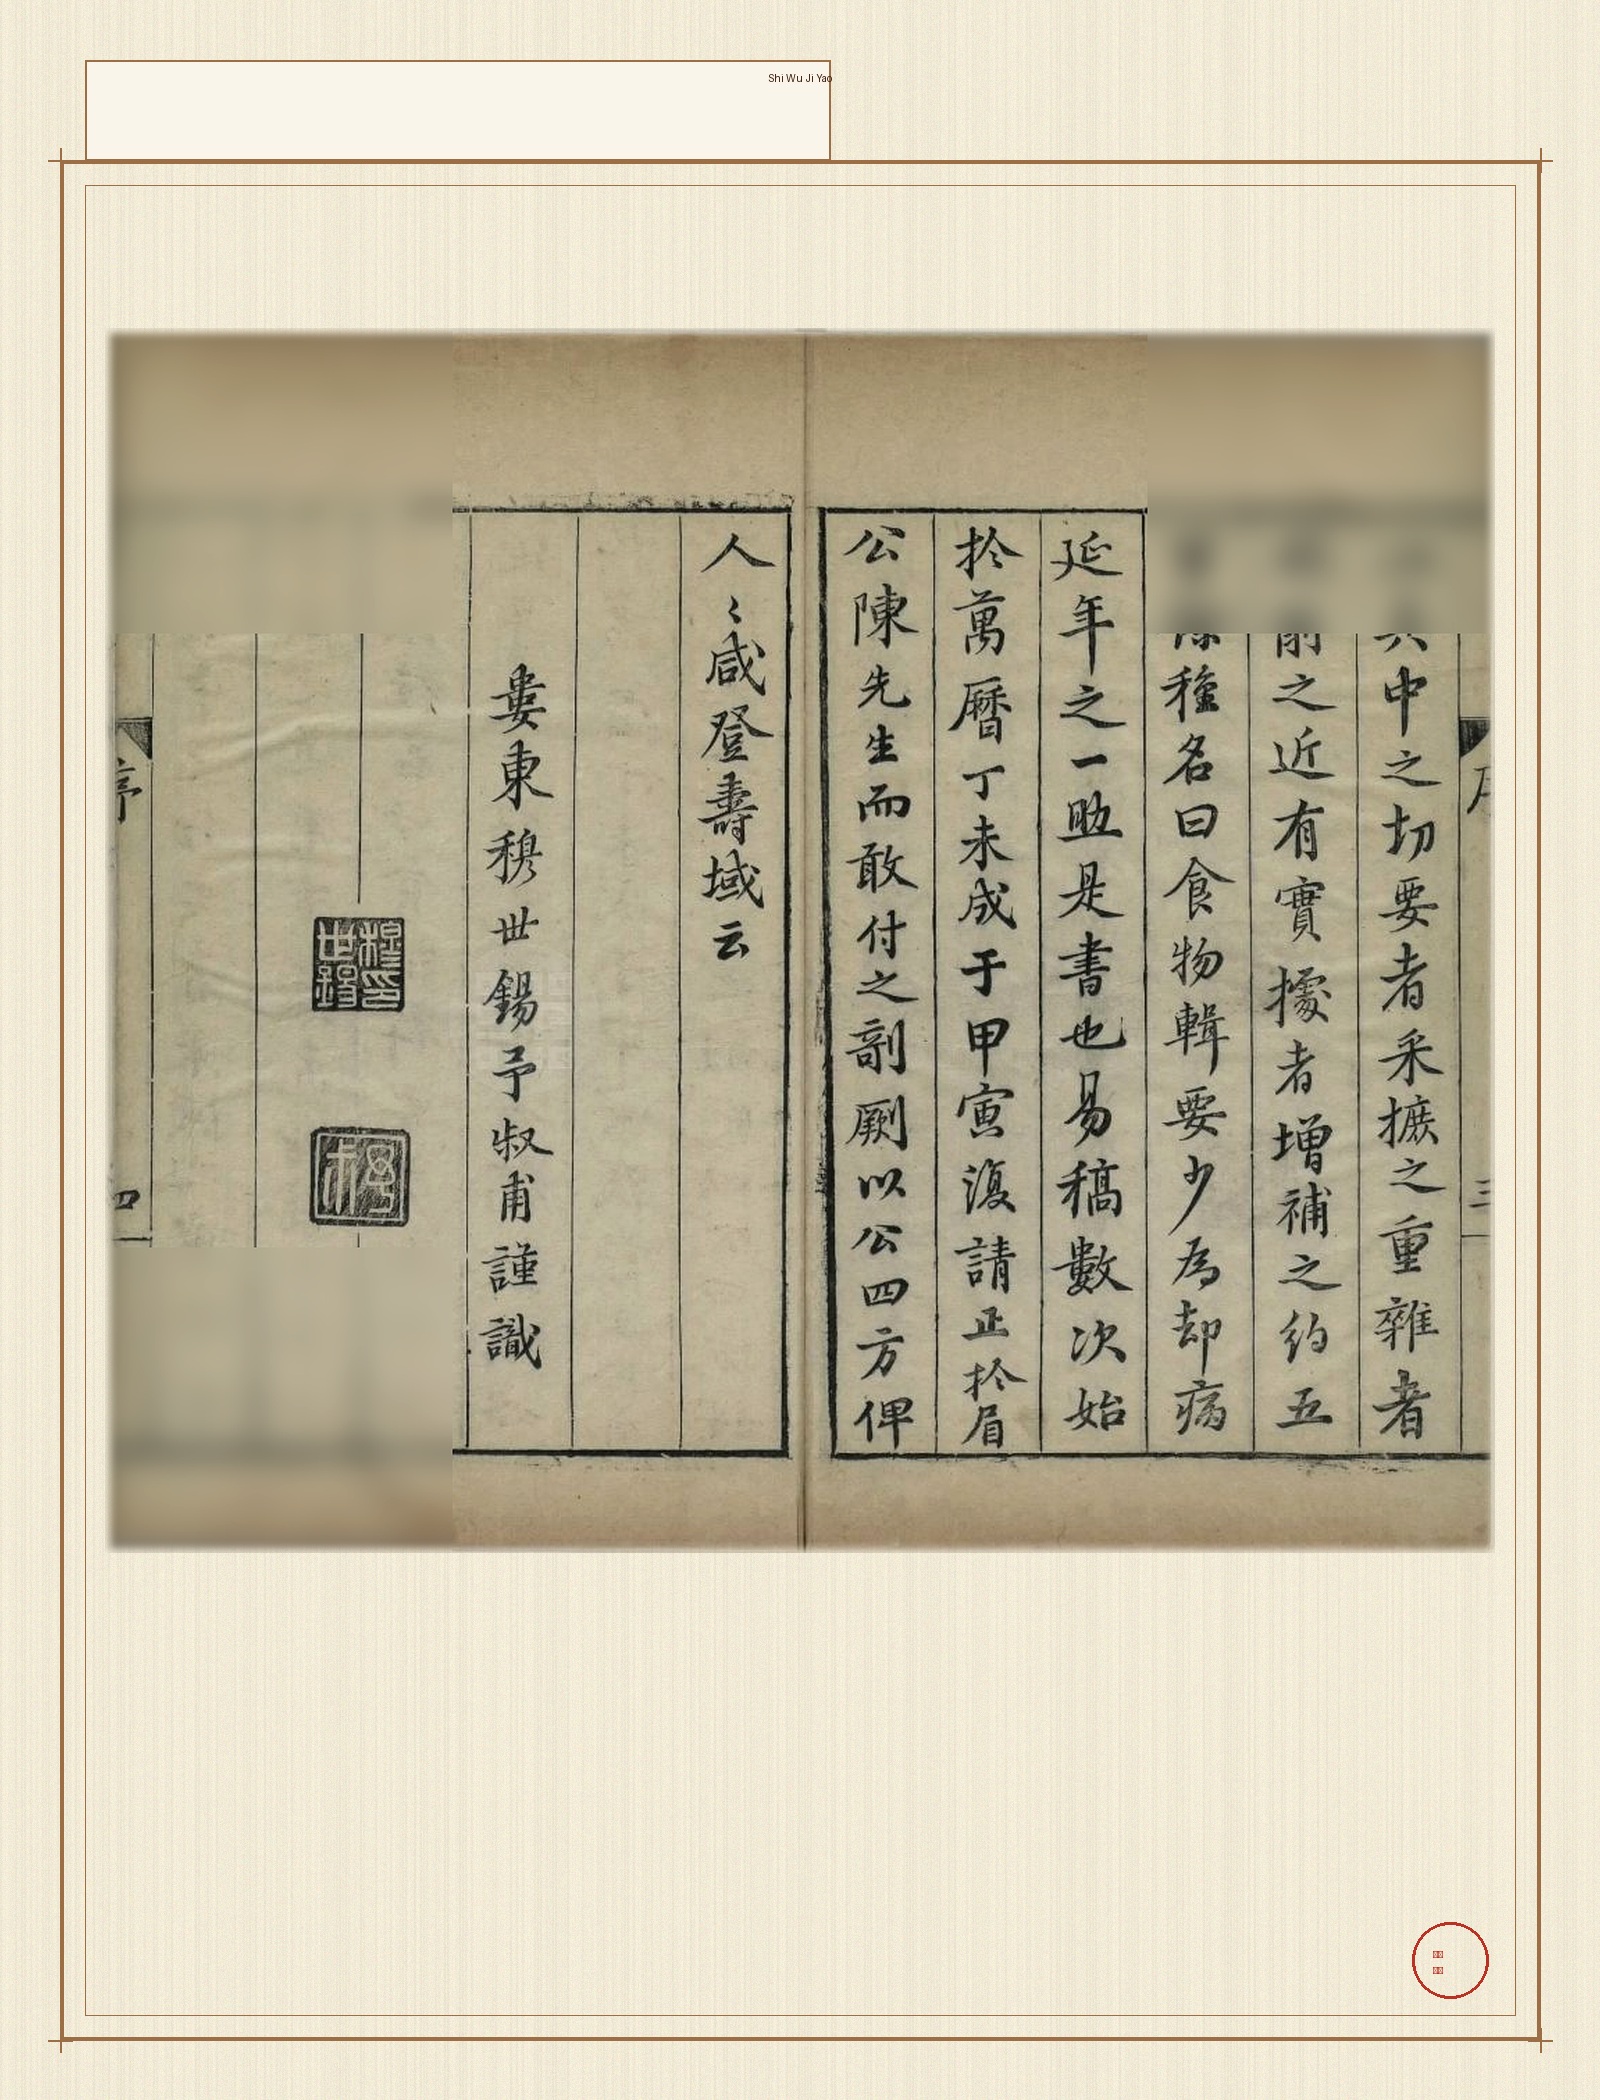 Shi Wu Ji Yao
中之切要者采摭之重雜者
之近有實據者增補之約五
種名曰食物輯要少為却病
延年之一助是書也易稿數次始
於萬曆丁未成于甲寅復請正於眉
公陳先生而敢付之剞劂以公四方俾
人〻咸登壽域云
婁東穆世錫予叔甫謹識
穆印世錫
序
四
三